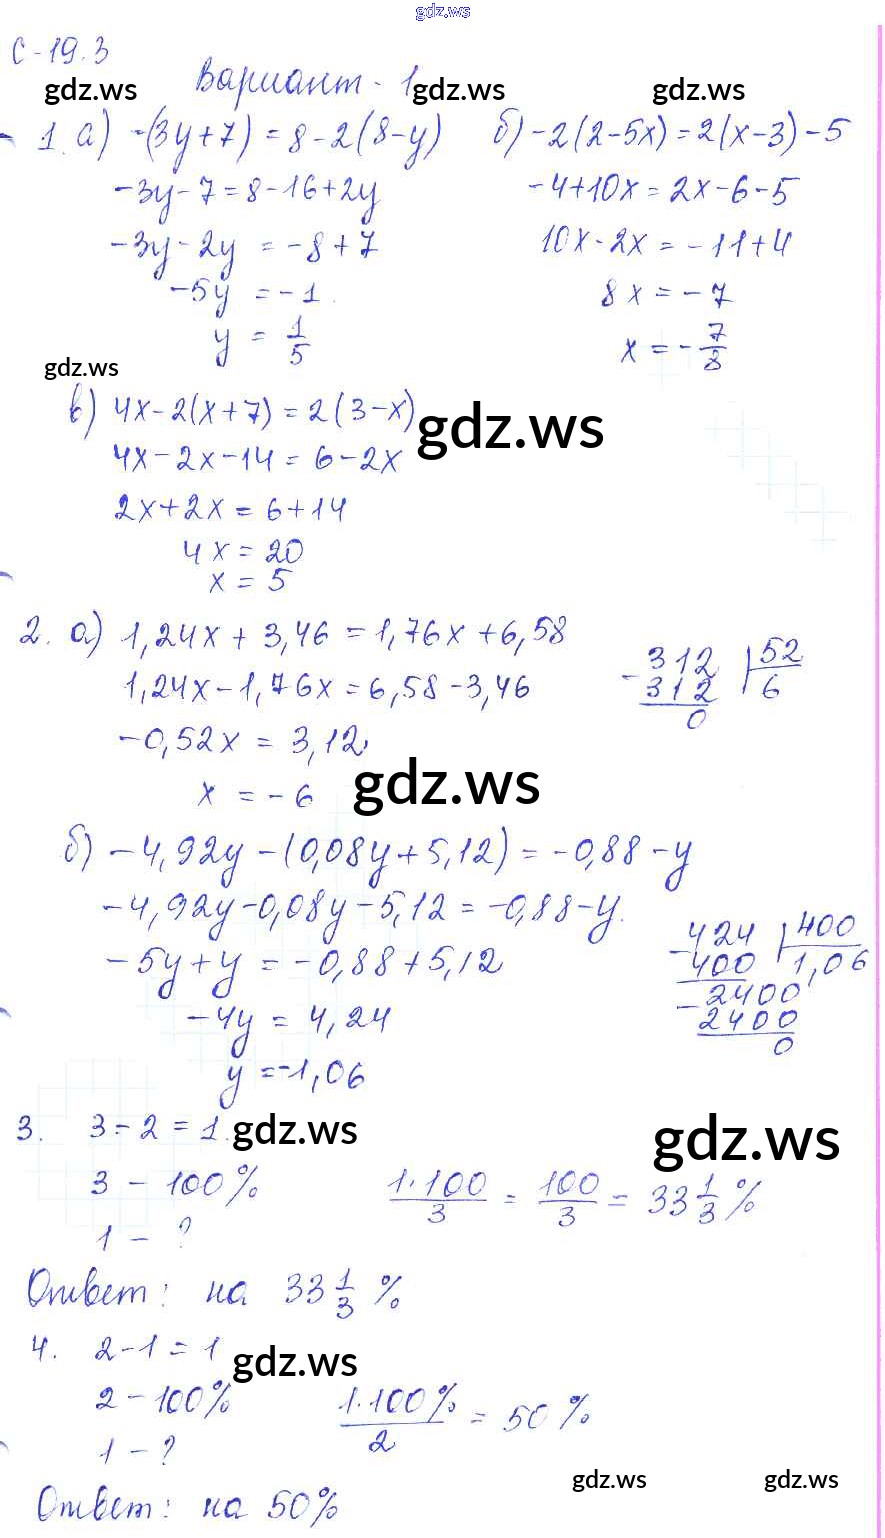 gdz.ws
С-19.3
Вариант - 1
gdz.ws gdz.ws gdz.ws
1. а) -(3y+7) = 8-2(8-y) б) -2(2-5x)=2(x-3)-5
-3y-7=8-16+2y -4+10x=2x-6-5
-3y-2y = -8+7 10x-2x = -11+4
-5y = -1 8x = -7
y = 1/5 x = -7/8
gdz.ws
в) 4x-2(x+7)=2(3-x)
gdz.ws
4x-2x-14=6-2x
2x+2x=6+14
4x=20
x=5
2. а) 1,24x+3,46=1,76x+6,58
1,24x-1,76x=6,58-3,46
-312 52
312 6
0
-0,52x = 3,12
x = -6
gdz.ws
б) -4,92y-(0,08y+5,12)=-0,88-y
-4,92y-0,08y-5,12=-0,88-y.
-5y+y = -0,88+5,12
-424 400
400 1,06
-2400
2400
0
-4y = 4,24
y=-1,06
3. 3-2=1.
gdz.ws gdz.ws
3 - 100% 1·100/3 = 100/3 = 33 1/3 %
1 - ?
Ответ: на 33 1/3 %
4. 2-1=1
gdz.ws
2-100% 1·100%/2 = 50%
1 - ?
gdz.ws gdz.ws
Ответ: на 50%